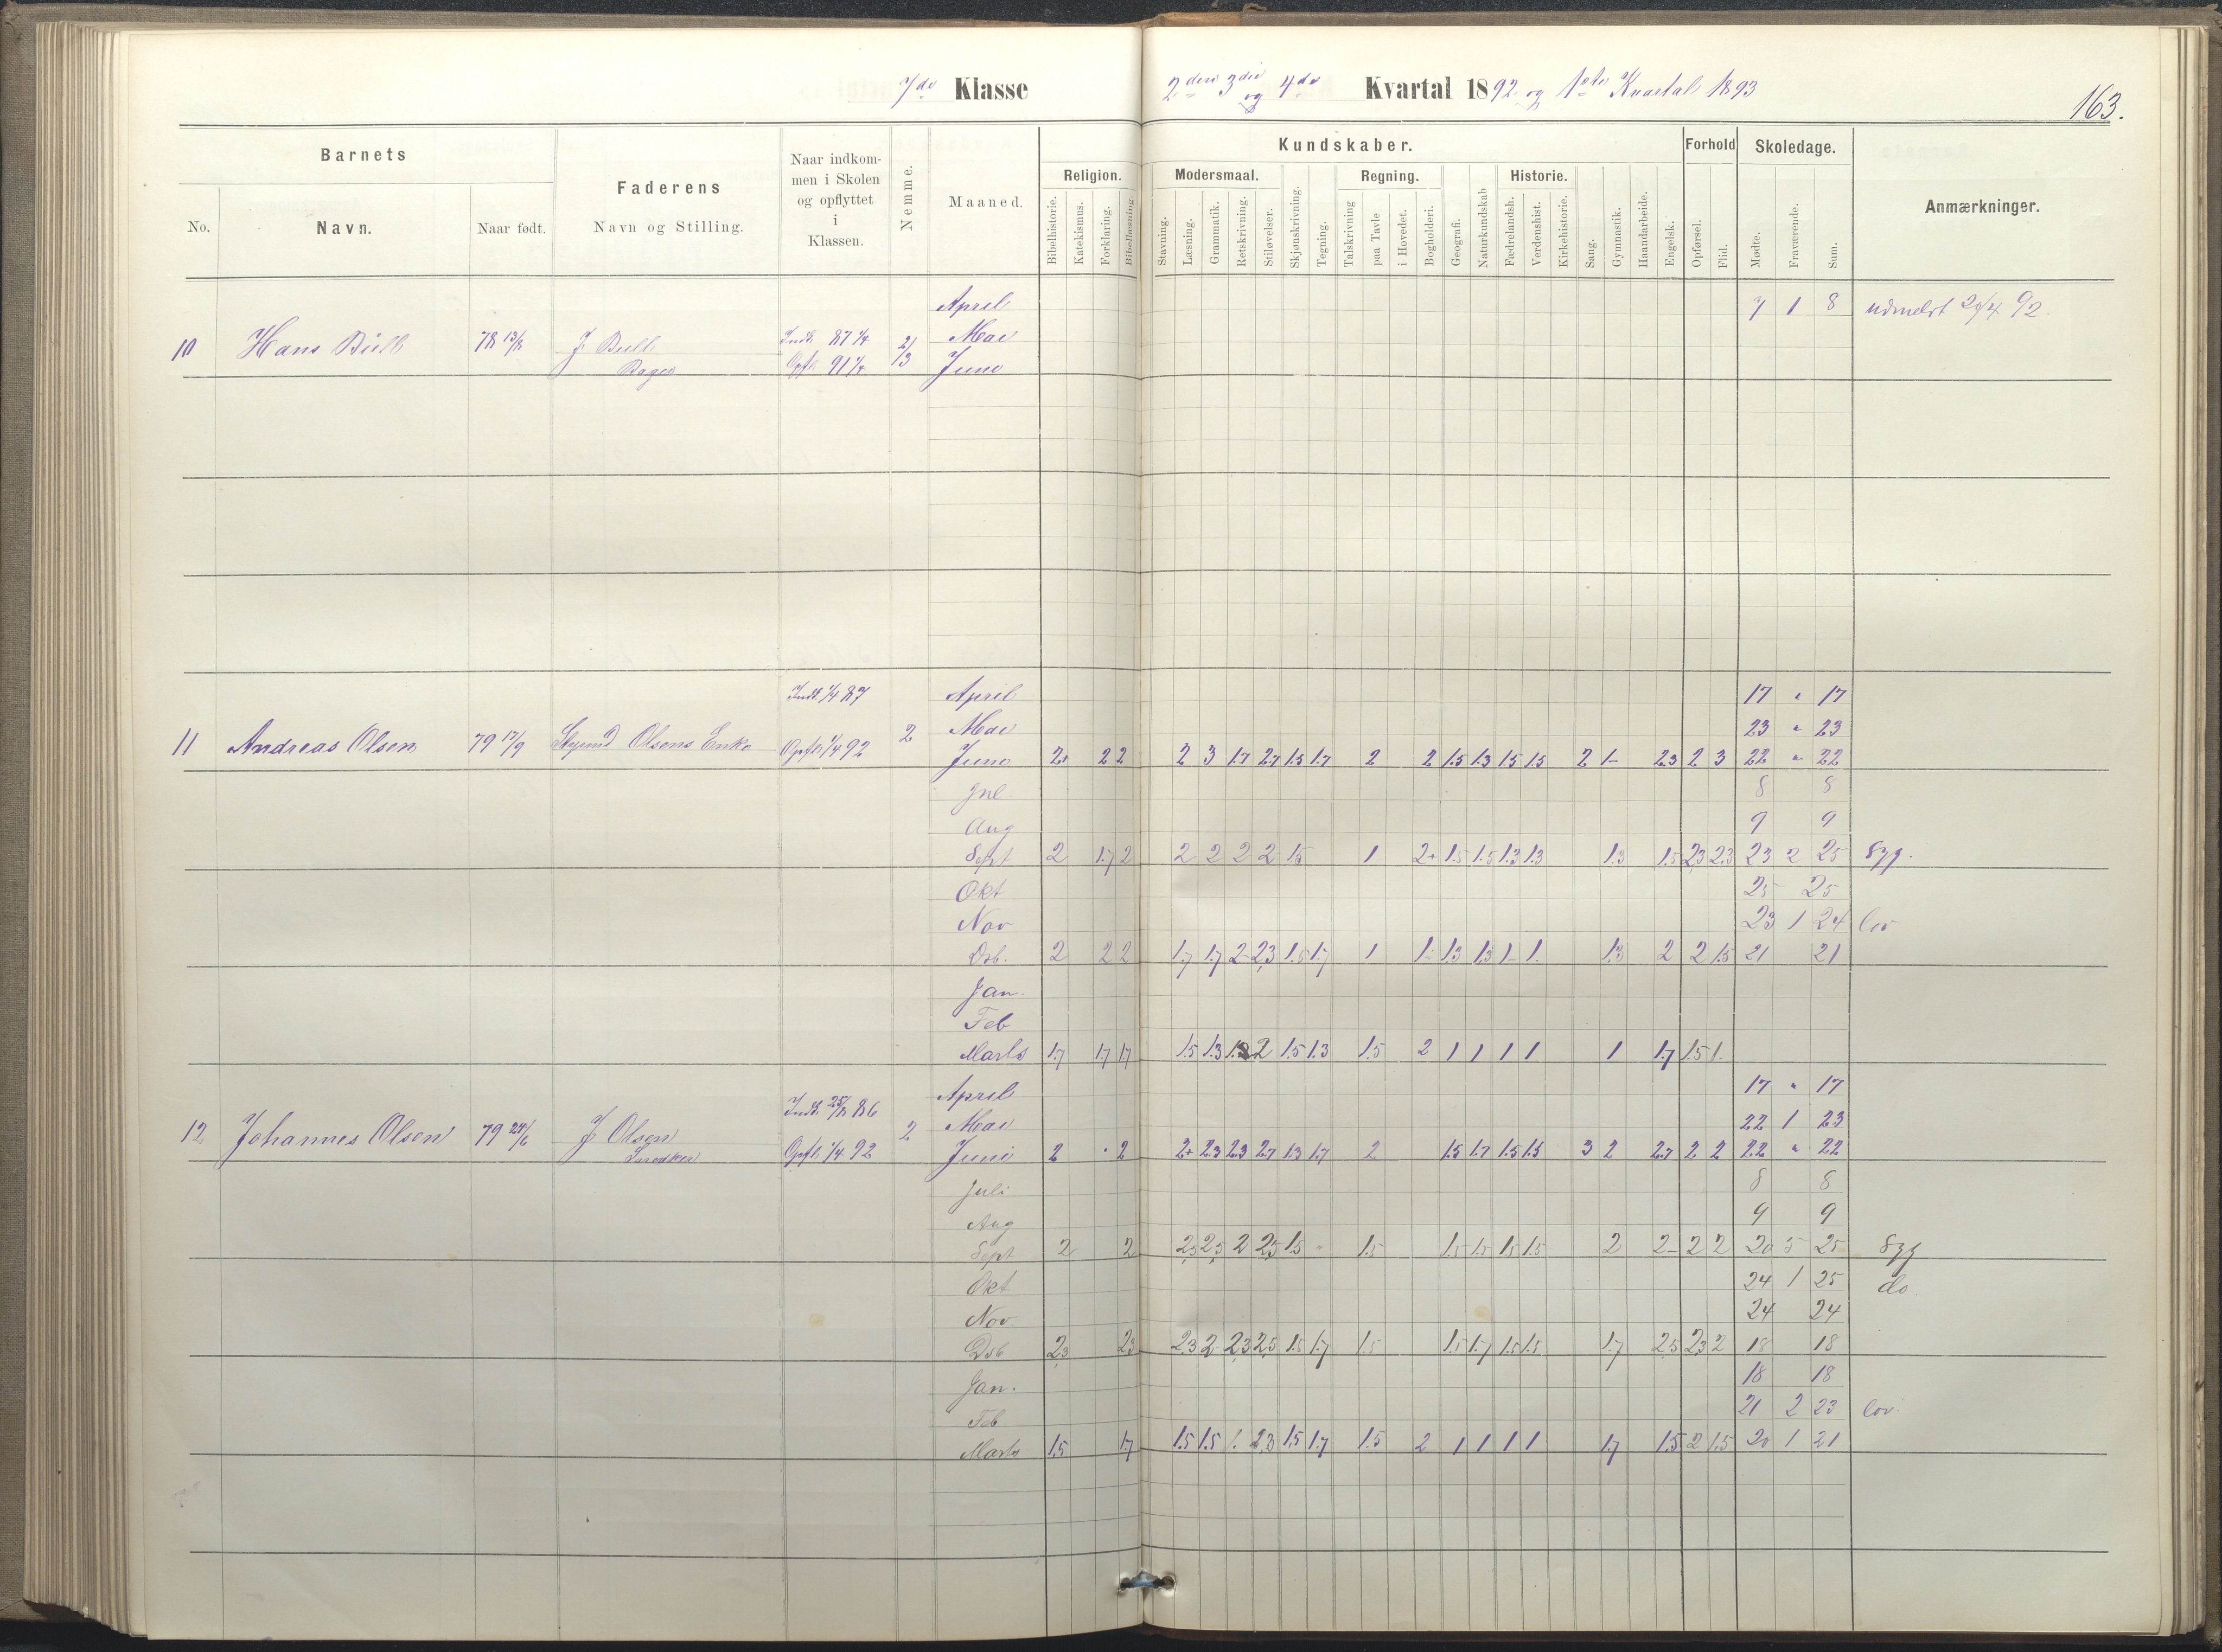 7de Klasse
2den 3die og 4de Kvartal 1892 og 1ste Kvartal 1893
163.
Barnets
No.
Navn.
Naar født.
Faderens
Navn og Stilling.
Naar indkom-
men i Skolen
og opflyttet
i
Klassen.
Nemme.
Maaned.
Kundskaber.
Religion.
Bibelhistorie.
Katekismus.
Forklaring.
Bibellæsning.
Modersmaal.
Stavning.
Læsning.
Grammatik.
Retskrivning.
Stiløvelser.
Skjønskrivning.
Tegning.
Regning.
Talskrivning
paa Tavle
i Hovedet.
Bogholderi.
Geografi.
Naturkundskab
Historie.
Fædrelandsh.
Verdenshist.
Kirkehistorie.
Sang.
Gymnastik.
Haandarbeide.
Engelsk.
Forhold
Opførsel.
Flid.
Skoledage.
Mødte.
Fraværende.
Sum.
Anmærkninger.
April 7 1 8 udmeldt 20/4 92.
10 Hans Bull 78 13/8 J. Bull Indt. 87 1/4 2/3 Mai
Bager Opfl. 91 1/4 Juno
Indt. 1/4 87 April 17 " 17
Mai 23 " 23
11 Andreas Olsen 79 17/9 Olsens Enke Opfl. 1/4 92 2
Juno 2+ 2 2 2 3 1.7 2.7 1.5 1.7 2 2 1.5 1.3 1.5 1.5 2 1- 2.3 2 3 22 " 22
Jul. 8 8
Aug 9 9
Sept 2 1.7 2 2 2 2 2 1.5 1 2+ 1.5 1.5 1.3 1.3 1.3 1.5 2,3 2.3 23 2 25 Syg.
Okt 25 25
Nov 23 1 24 lov
Dsb. 2 2 2 1.7 1.7 2- 2,3 1.5 1.7 1 1- 1.3 1.3 1- 1. 1.3 2 2 1.5 21 21
Jan.
Feb
Marts 1.7 1.7 1.7 1.5 1.3 2 1.5 1.3 1.5 2 1 1 1 1 1 1.7 1.5 1.
April 17 " 17
Indt. 25/8 86 Mai 22 1 23
12 Johannes Olsen 79 24/6 J. Olsen Opfl. 1/4 92 2
Snedker
Juni 2 " 2 2+ 2.3 2.3 2.7 1.3 1.7 2 1.5 1.7 1.5 1.5 3 2 2.7 2 2 22 " 22
Juli 8 8
Aug 9 9
Sept 2 2 2,5 2,5 2 2,5 1.5 " 1.5 1.5 1.5 1.5 1.5 2 2- 2 2 20 5 25 Syg
Okt 24 1 25 do
Nov. 24 24
Dsb 2,3 2,3 2,3 2 2,3 2,5 1.5 1.7 1.5 1.5 1.7 1.5 1.5 1.7 2,5 2,3 2 18 18
Jan. 18 18
Feb 21 2 23 lov.
Marts 1.5 1.7 1.5 1.5 1. 2,3 1.5 1.7 1.5 2 1 1 1 1 1.7 1.5 2 1.5 20 1 21